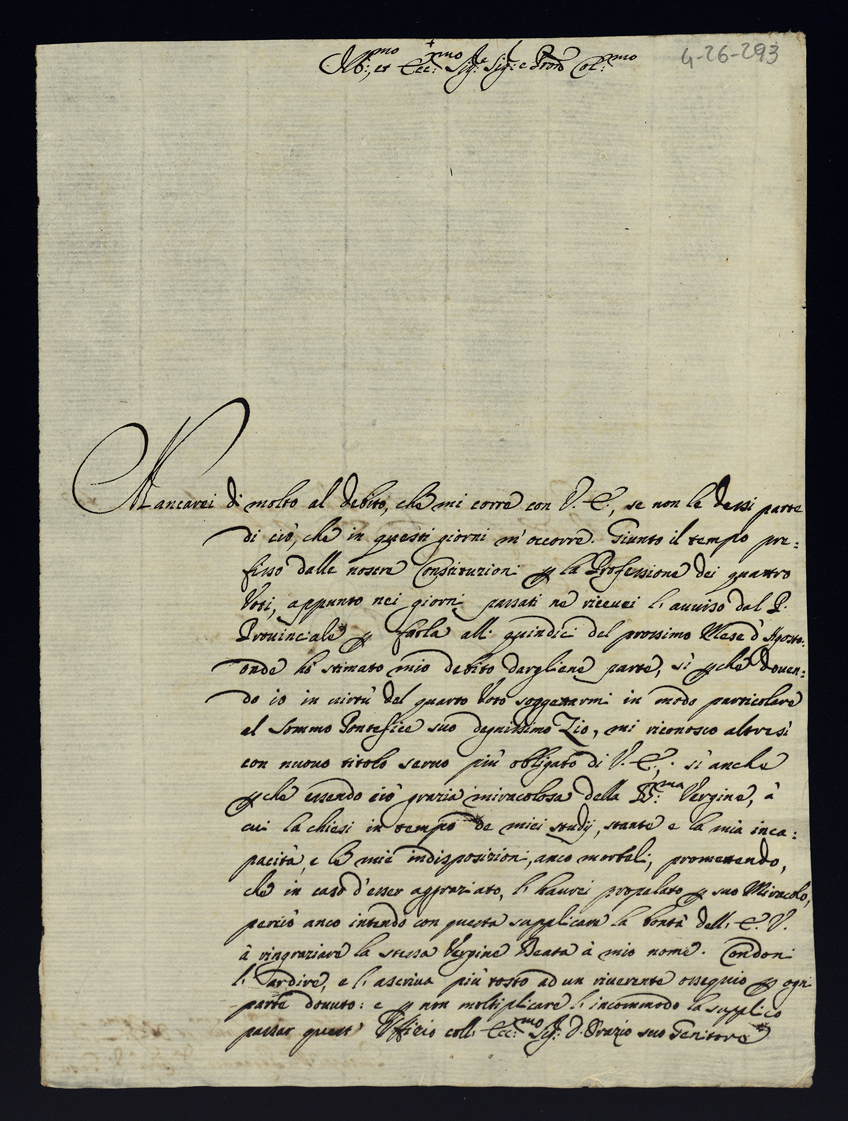 4-26-293
+
Ill:mo, et Ecc:mo Sig:re Sig:r e Pron Col:mo
Mancarei di molto al debito, che mi corre con V. E., se non le dessi parte
di ciò, che in questi giorni m'occorre. Giunto il tempo pre:
fisso dalle nostre Constituzioni p la Professione dei quattro
Voti, appunto nei giorni passati ne ricevei l'avviso dal P.
Provinciale p farla alli quindici del prossimo Mese d'Agosto:
onde hò stimato mio debito dargliene parte, sì pche doven:
do io in virtù del quarto Voto soggettarmi in modo particolare
al Sommo Pontefice suo degnissimo Zio, mi riconosco altresì
con nuovo titolo servo più obligato di V. E.: sì anche
pche essendo ciò grazia miracolosa della B:ma Vergine, à
cui la chiesi in tempo de miei studij, stante e la mia inca:
pacità, e le mie indisposizioni, anco mortali, promettendo,
che in caso d'esser aggraziato, l'haurei propalato p suo Miracolo,
perciò anco intendo con questa supplicare la bontà dell'E. V.
à ringraziare la stessa Vergine Beata à mio nome. Condoni
l'ardire, e l'ascriva più tosto ad un riverente ossequio p ogni
parte dovuto: e p non moltiplicare l'incommodo la supplico
passar quest'Ufficio coll'Ecc:mo Sig: D. Orazio suo Genitore